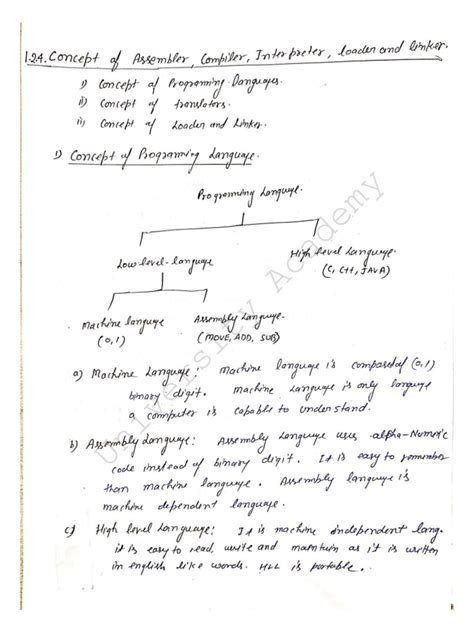 1.24. Concept of Assembler, Compiler, Interpreter, loader and linker.
i) Concept of Programming Languages.
ii) Concept of translators.
iii) Concept of Loader and Linker.
1) Concept of Programming Language.
Programming Language.
Low level-language
High level Language.
(C, C++, JAVA)
Machine language
(0,1)
Assembly Language.
(MOVE, ADD, SUB)
a) Machine Language: Machine language is compased of (0,1)
binary digit. Machine Language is only language
a computer is capable to understand.
b) Assembly Language: Assembly Language uses alpha-Numeric
code instead of binary digit. It is easy to remember
than machine language. Assembly language is
machine dependent language.
c) High level Language: It is machine independent lang.
it is easy to read, write and maintain as it is written
in english like words. HLL is portable.
University Academy